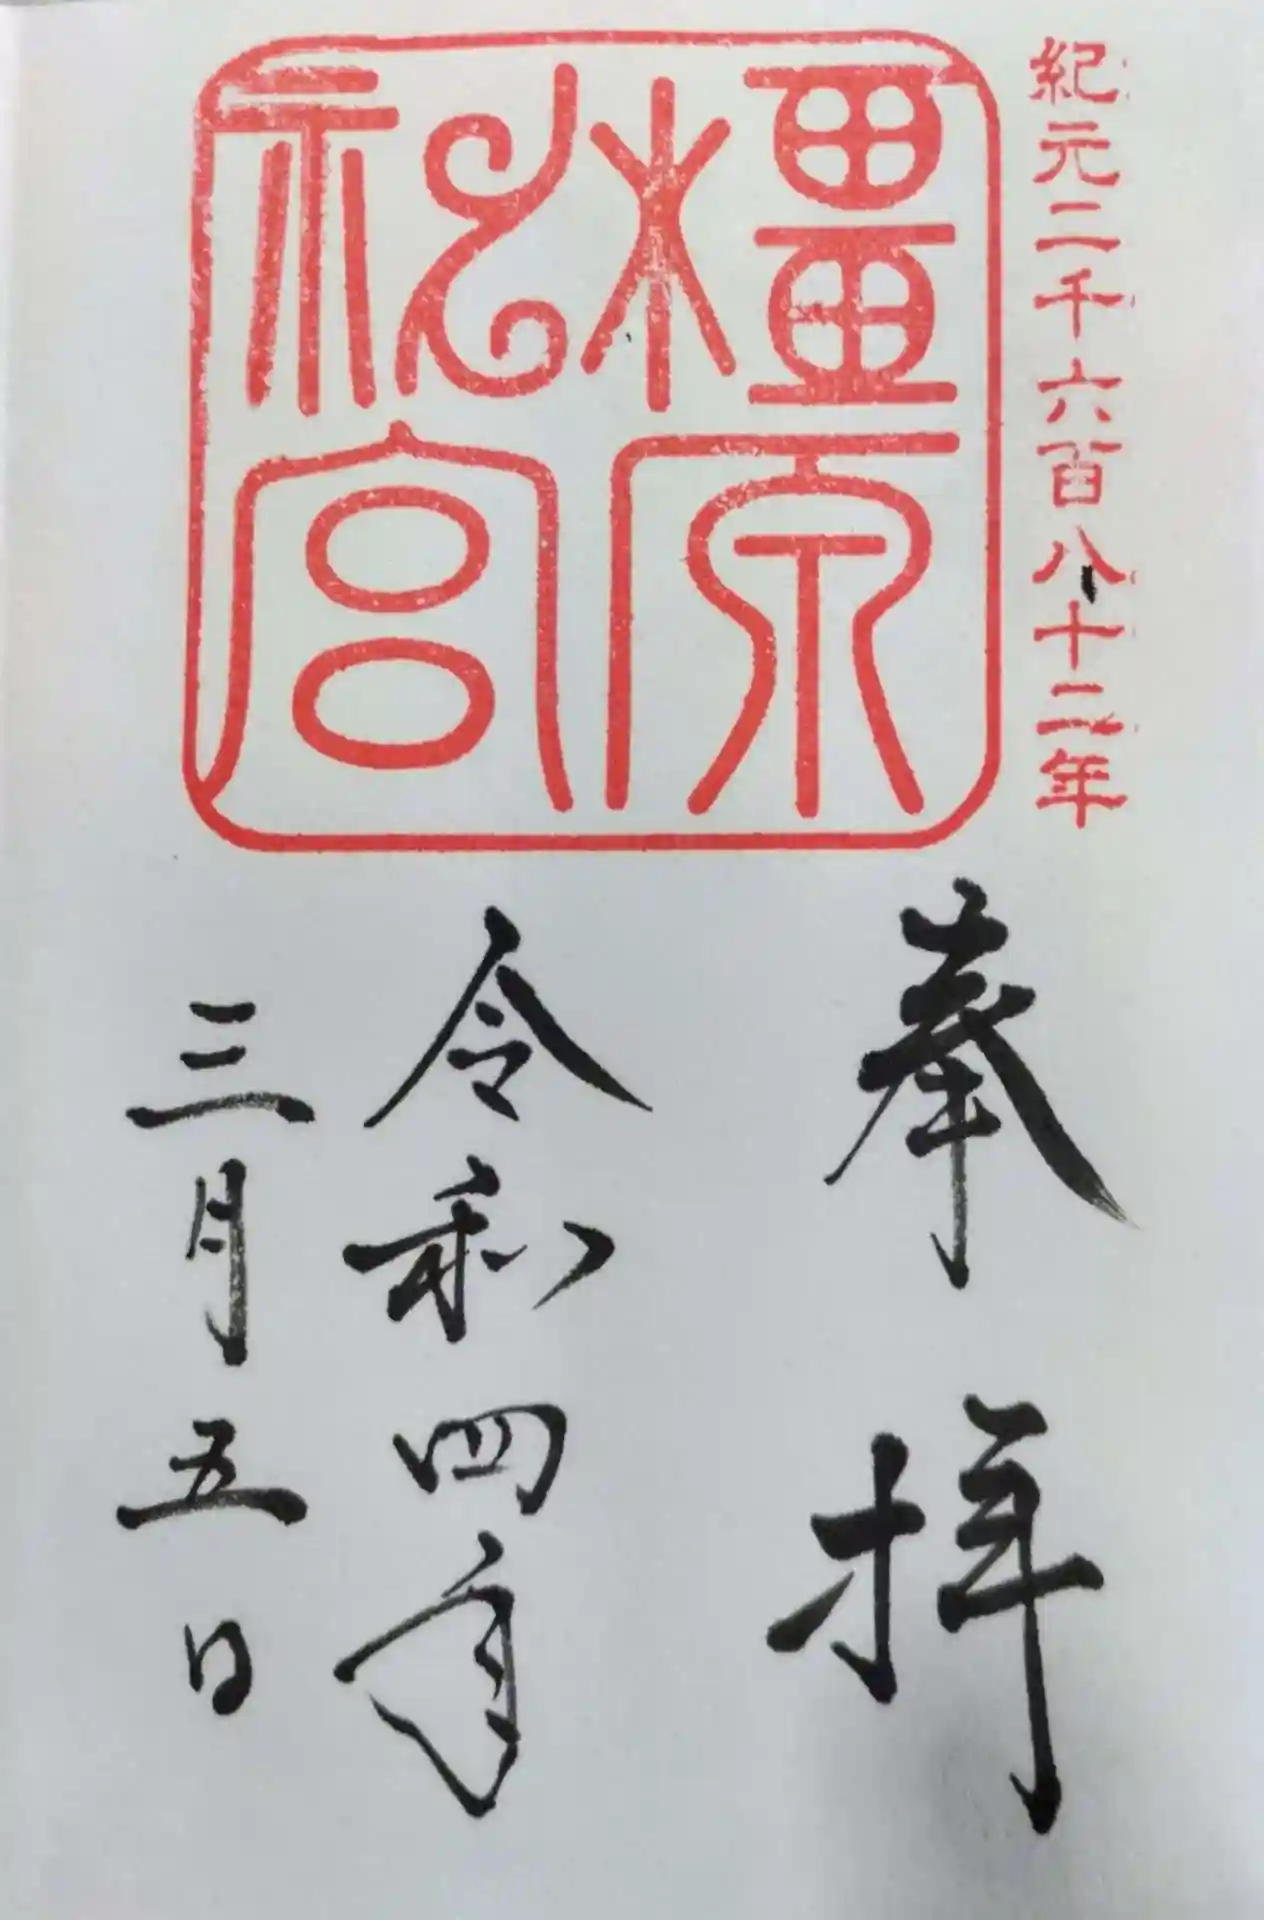 紀元二千六百八十二年
橿原
神宮
奉拝
令和四年
三月五日